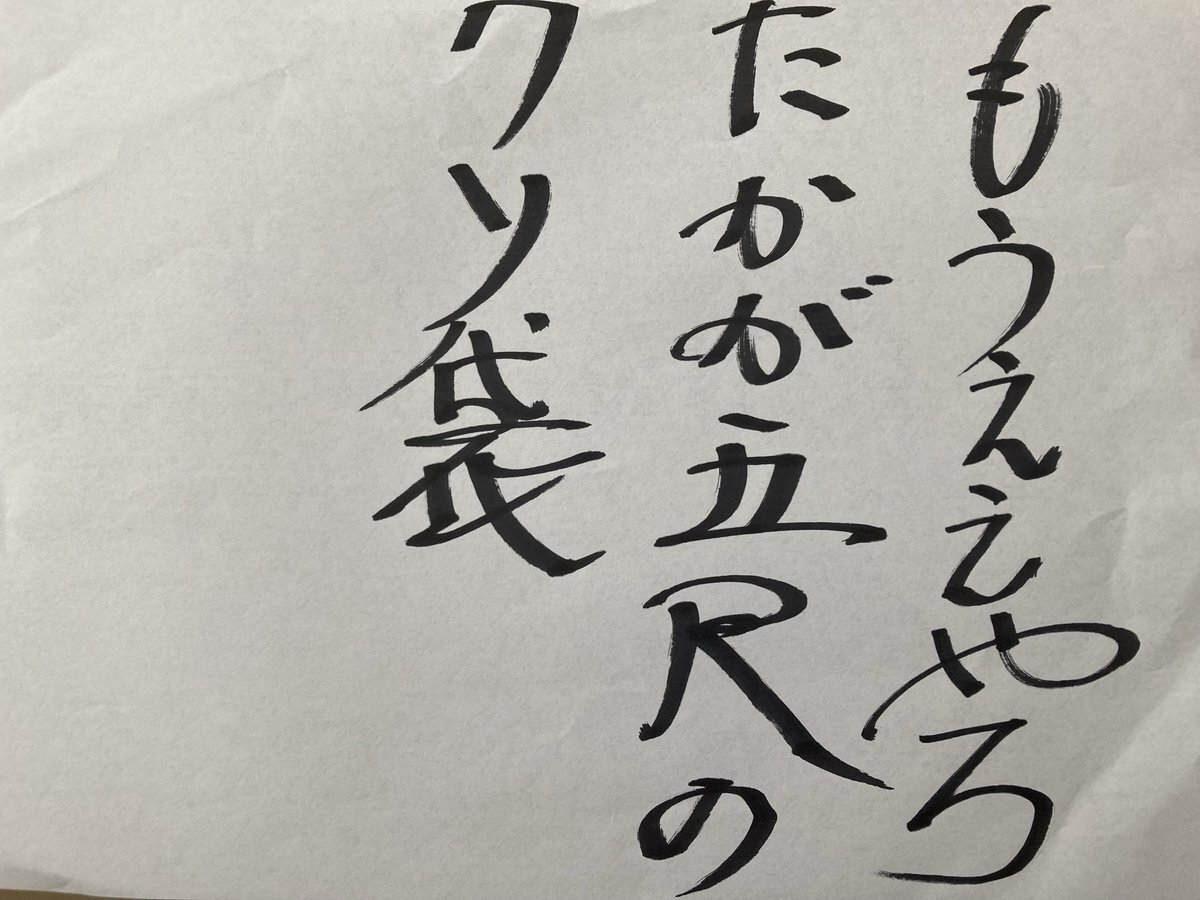 もうええやろ
たかが五Rの
クソ袋